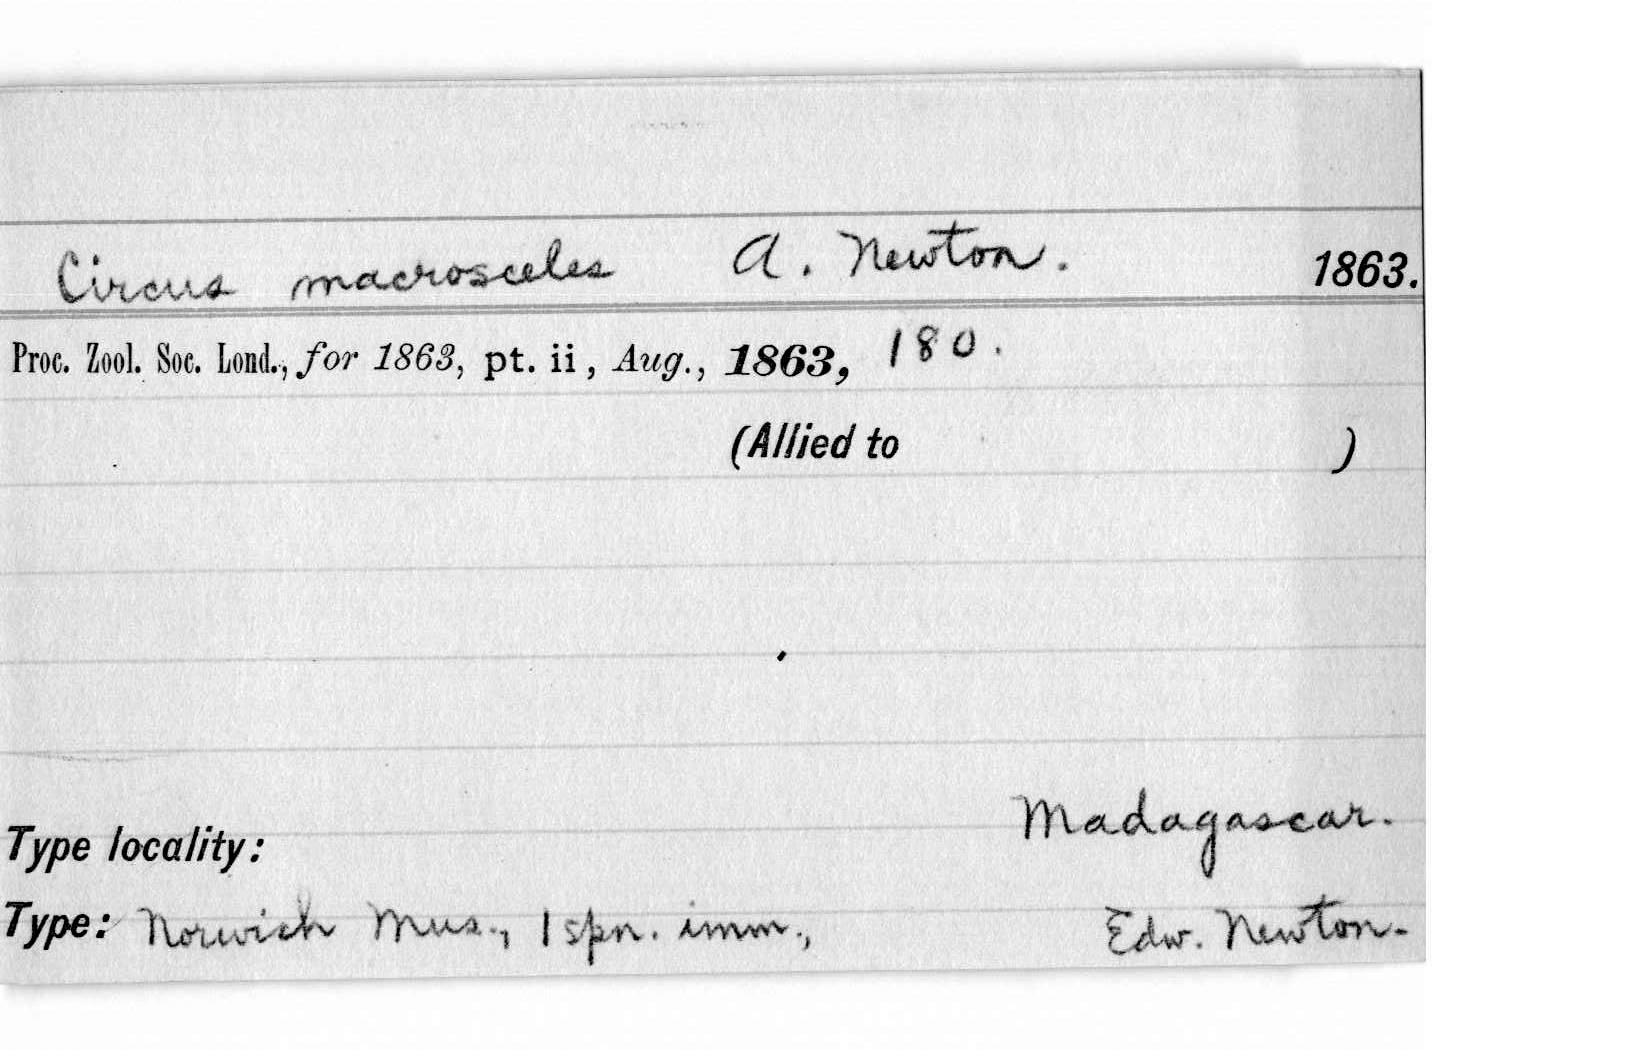 Circus macrosceles A. Newton. 1863.
Proc. Zool. Soc. Lond., for 1863, pt. ii, Aug., 1863, 180.
(Allied to )
Type locality: Madagascar.
Type: Norwich Mus., 1 spn. imm., Edw. Newton.